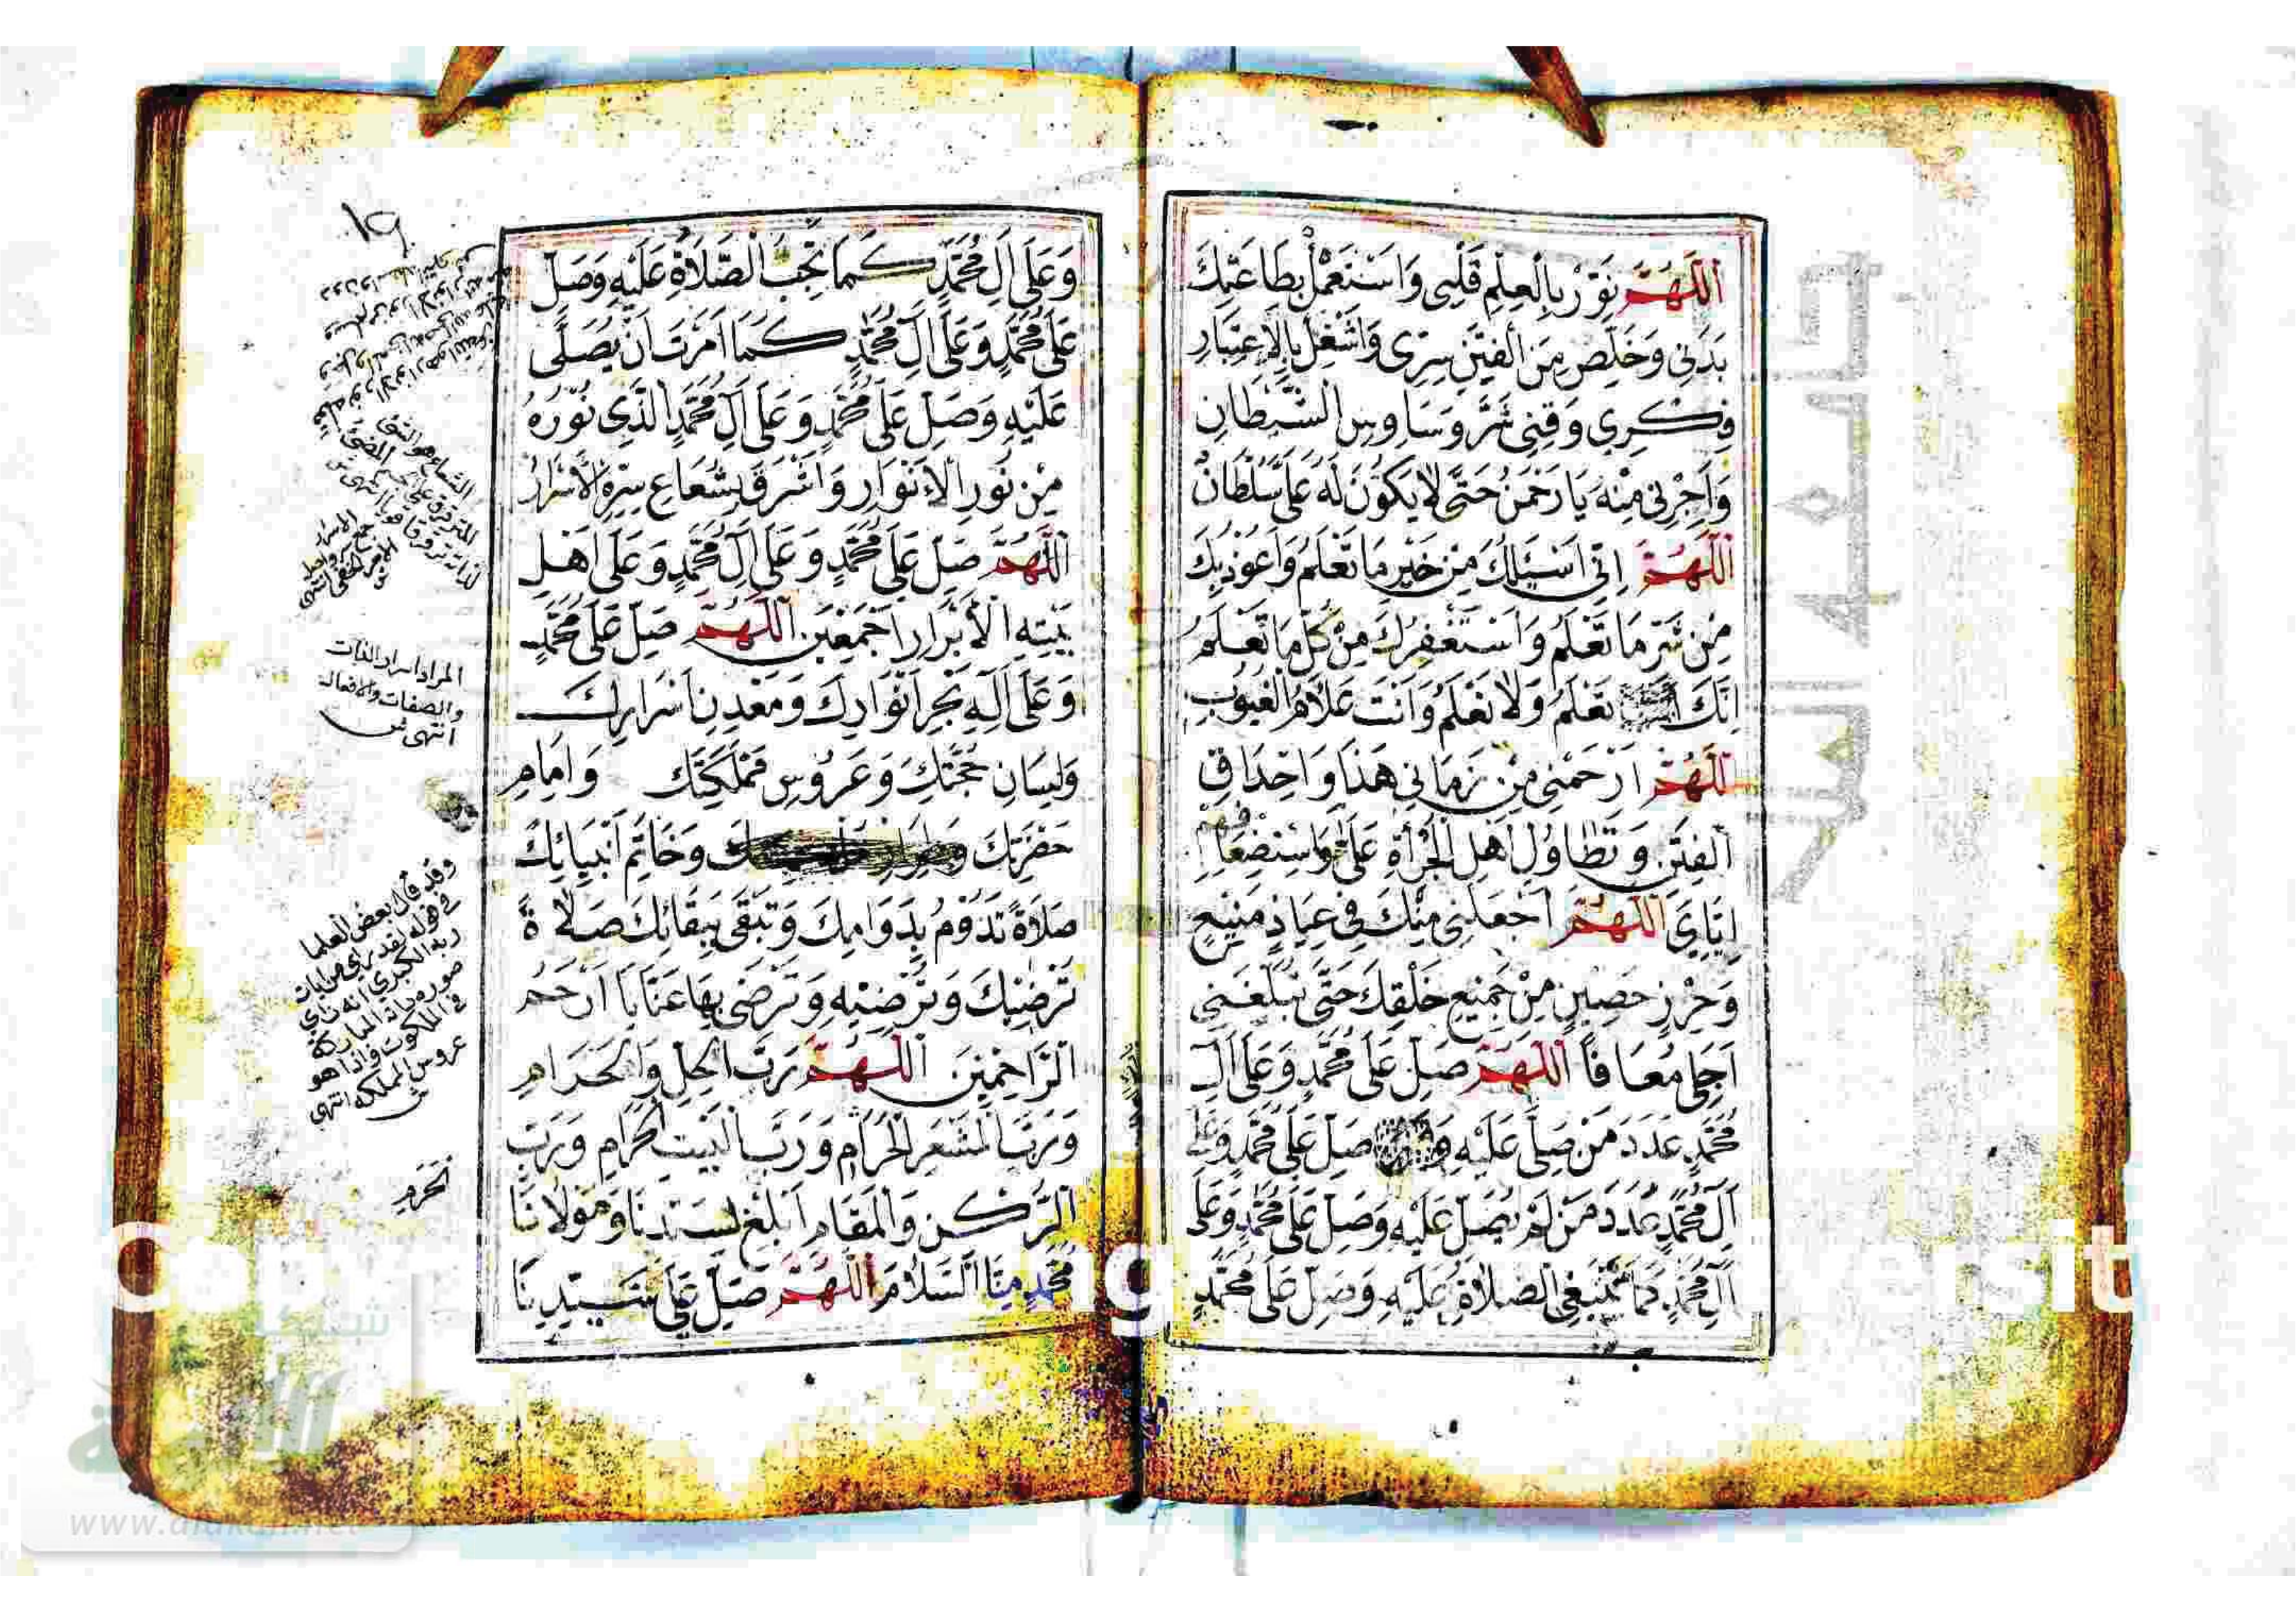 اَللّٰهُمَّ نَوِّرْ بِالْعِلْمِ قَلْبِي وَاسْتَعْمِلْ بِطَاعَتِكَ
بَدَنِي وَخَلِّصْ مِنَ الْفِتَنِ سِرِّي وَاشْغِلْ بِالْاِعْتِبَارِ
فِكْرِي وَقِنِي شَرَّ وَسَاوِسِ الشَّيْطَانِ
وَاَجِرْنِي مِنْهُ يَا رَحْمٰنُ حَتَّى لَا يَكُونَ لَهُ عَلَيَّ سُلْطَانْ
اَللّٰهُمَّ اِنِّي اَسْئَلُكَ مِنْ خَيْرِ مَا تَعْلَمُ وَاَعُوذُ بِكَ
مِنْ شَرِّ مَا تَعْلَمُ وَاَسْتَغْفِرُكَ مِنْ كُلِّ مَا تَعْلَمُ
اِنَّكَ تَعْلَمُ وَلَا نَعْلَمُ وَاَنْتَ عَلَّامُ الْغُيُوبِ
اَللّٰهُمَّ ارْحَمْنِي مِنْ زَمَانِي هٰذَا وَاِحْدَاقِ
الْفِتَنِ وَتَطَاوُلِ اَهْلِ الْجُرْأَةِ عَلَيَّ وَاسْتِضْعَافِهِمْ
اِيَّايَ اَللّٰهُمَّ اجْعَلْنِي مِنْكَ فِي عِيَاذٍ مَنِيعٍ
وَحِرْزٍ حَصِينٍ مِنْ جَمِيعِ خَلْقِكَ حَتَّى تُبَلِّغَنِي
اَجَلِي مُعَافًا اَللّٰهُمَّ صَلِّ عَلَى مُحَمَّدٍ وَعَلَى اٰلِ
مُحَمَّدٍ عَدَدَ مَنْ صَلَّى عَلَيْهِ وَصَلِّ عَلَى مُحَمَّدٍ وَعَلَى
اٰلِ مُحَمَّدٍ عَدَدَ مَنْ لَمْ يُصَلِّ عَلَيْهِ وَصَلِّ عَلَى مُحَمَّدٍ وَعَلَى
اٰلِ مُحَمَّدٍ كَمَا تَنْبَغِي الصَّلَاةُ عَلَيْهِ وَصَلِّ عَلَى مُحَمَّدٍ
١٩
وَعَلَى اٰلِ مُحَمَّدٍ كَمَا تَجِبُ الصَّلَاةُ عَلَيْهِ وَصَلِّ
عَلَى مُحَمَّدٍ وَعَلَى اٰلِ مُحَمَّدٍ كَمَا اَمَرْتَ اَنْ يُصَلَّى
عَلَيْهِ وَصَلِّ عَلَى مُحَمَّدٍ وَعَلَى اٰلِ مُحَمَّدٍ الَّذِي نُورُهُ
مِنْ نُورِ الْاَنْوَارِ وَاَشْرَقَ بِشُعَاعِ سِرِّهِ الْاَسْرَارُ
اَللّٰهُمَّ صَلِّ عَلَى مُحَمَّدٍ وَعَلَى اٰلِ مُحَمَّدٍ وَعَلَى اَهْلِ
بَيْتِهِ الْاَبْرَارِ اَجْمَعِينَ اَللّٰهُمَّ صَلِّ عَلَى مُحَمَّدٍ
وَعَلَى اٰلِهِ بَحْرِ اَنْوَارِكَ وَمَعْدِنِ اَسْرَارِكَ
وَلِسَانِ حُجَّتِكَ وَعَرُوسِ مَمْلَكَتِكَ وَاِمَامِ
حَضْرَتِكَ وَخَاتِمِ اَنْبِيَائِكَ
صَلَاةً تَدُومُ بِدَوَامِكَ وَتَبْقَى بِبَقَائِكَ صَلَاةً
تُرْضِيكَ وَتُرْضِيهِ وَتَرْضَى بِهَا عَنَّا يَا اَرْحَمَ
الرَّاحِمِينَ اَللّٰهُمَّ رَبَّ الْحِلِّ وَالْحَرَامِ
وَرَبَّ الْمَشْعَرِ الْحَرَامِ وَرَبَّ الْبَيْتِ الْحَرَامِ وَرَبَّ
الرُّكْنِ وَالْمَقَامِ اَبْلِغْ لِسَيِّدِنَا وَمَوْلَانَا
مُحَمَّدٍ مِنَّا السَّلَامَ اَللّٰهُمَّ صَلِّ عَلَى سَيِّدِنَا
الشعاع هو الشئ
المراد اسرار الذات
والصفات والافعال
انتهى ش
وقد قال بعض العلما
في قوله لقد راى من ايات
ربه الكبرى انه راى
صورة ذاته المباركة
في الملكوت فاذا هو
عروس المملكة انتهى
ش
شبكة
الألوكة
www.alukah.net